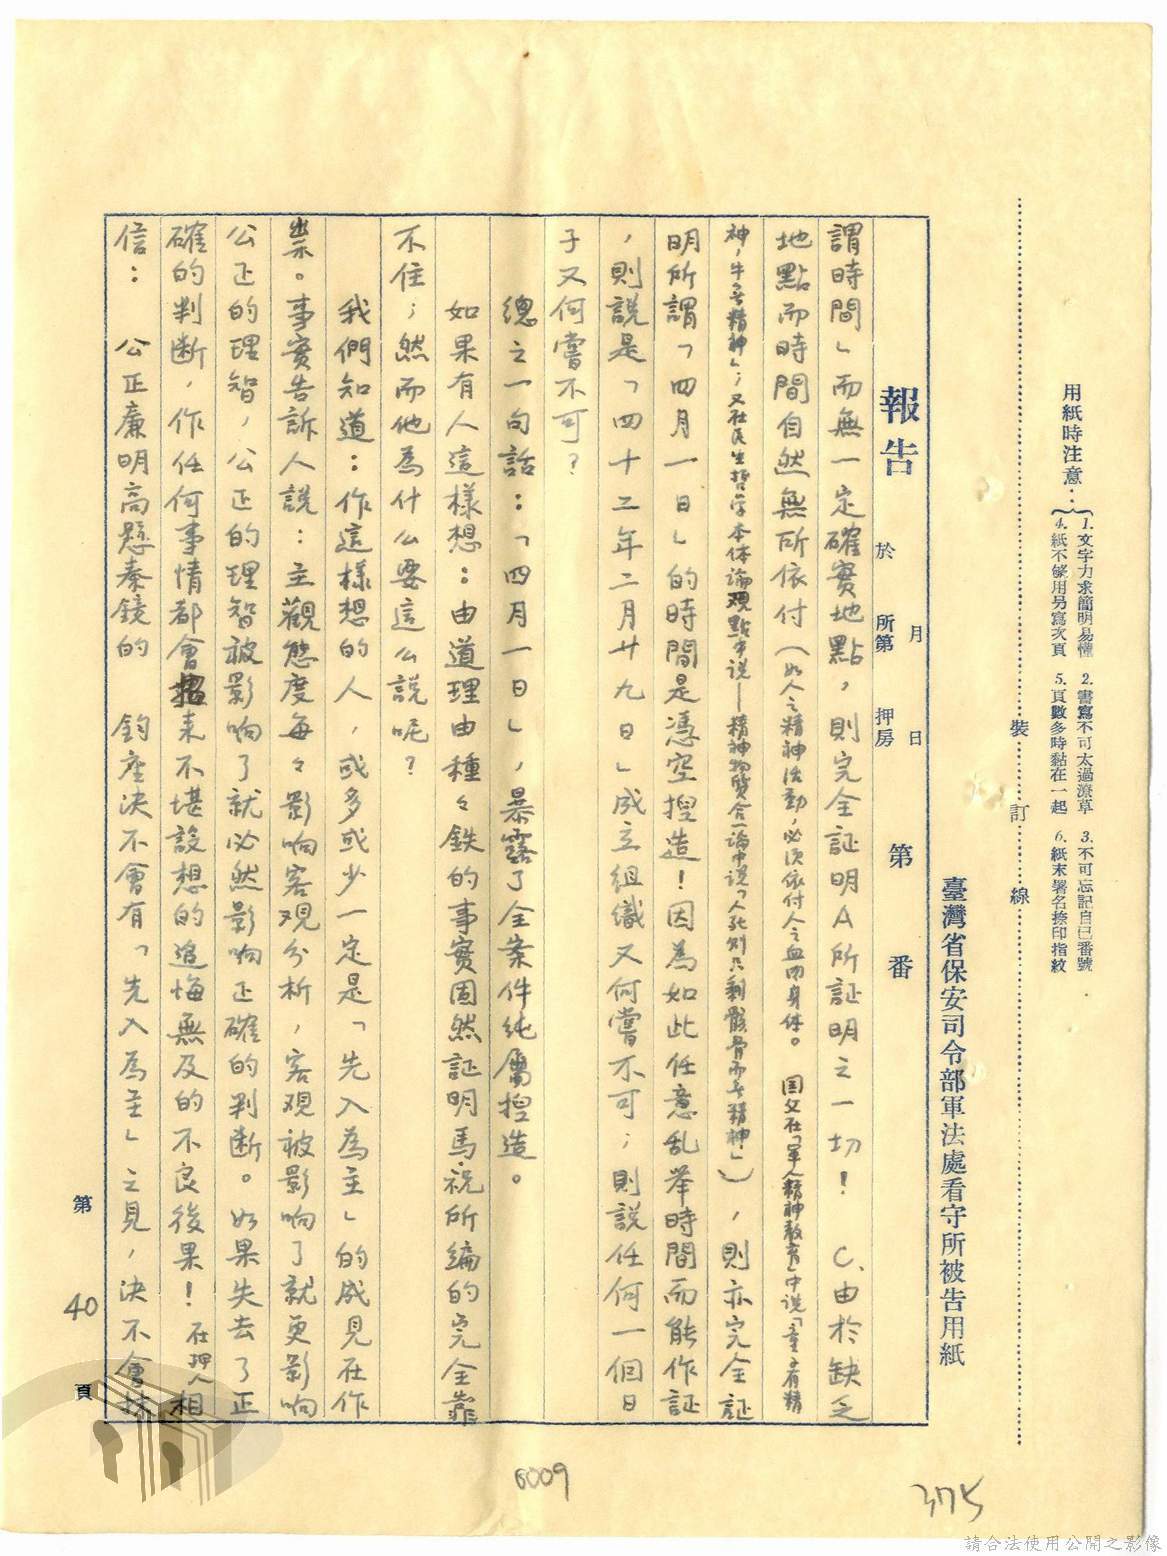 用紙時注意：
1.文字力求簡明易懂　2.書寫不可太過潦草　3.不可忘記自己番號
4.紙不够用另寫次頁　5.頁數多時黏在一起　6.紙末署名捺印指紋
裝訂線
臺灣省保安司令部軍法處看守所被告用紙
報告　於　月　日
所第　押房　第　番
謂時間」而無一定確實地點，則完全証明A所証明之一切！　C、由於缺乏
地點而時間自然無所依付（如人之精神活動，必須依付人之血肉身体。　国父在「軍人精神教育」中説「童子有精
神，牛無精神」；又在民生哲学本体論观點中説—精神物質合一論中説「人死則只剩骸骨而無精神」），則亦完全証
明所謂「四月一日」的時間是憑空捏造！因為如此任意乱举時間而能作証
，則説是「四十二年二月廿九日」成立組織又何嘗不可；則説任何一個日
子又何嘗不可？
總之一句話：「四月一日」，暴露了全案件纯屬捏造。
如果有人這樣想：由道理由種々鉄的事實固然証明馬・祝所編的完全靠
不住；然而他為什么要這么説呢？
我們知道：作這樣想的人，或多或少一定是「先入為主」的成見在作
祟。事實告訴人説：主觀態度每々影响客观分析，客观被影响了就更影响
公正的理智，公正的理智被影响了就必然影响正確的判断。如果失去了正
確的判断，作任何事情都會招来不堪設想的追悔無及的不良後果！在押人相
信：　公正廉明高懸秦鏡的　鈞座決不會有「先入為主」之見，決不會抹
第　40　頁
6009
375
請合法使用公開之影像